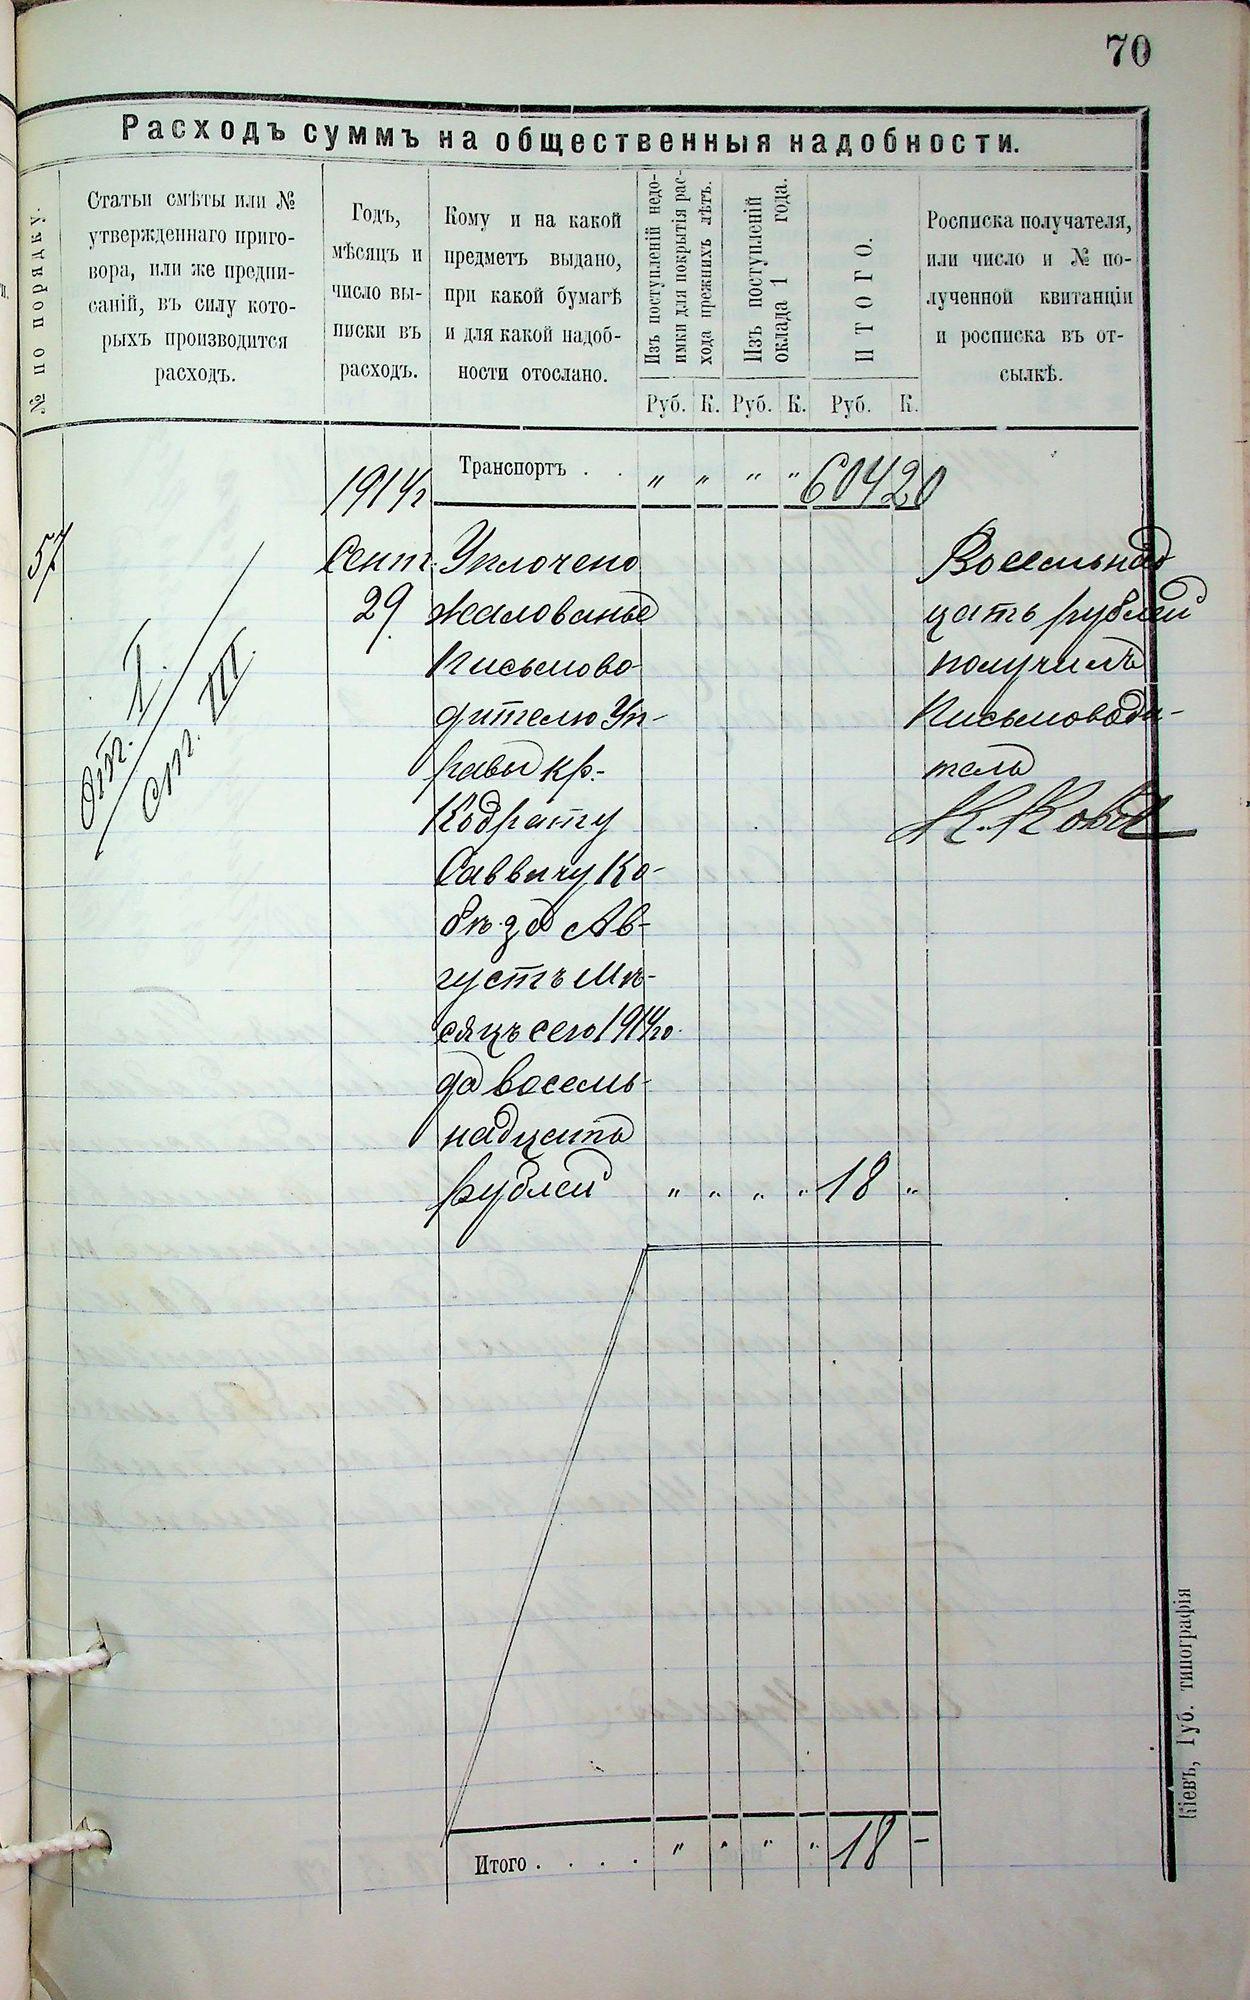 70
Расходъ суммъ на общественныя надобности.
№ по порядку.
Статьи смѣты или №
утвержденнаго приго-
вора, или же предпи-
саній, въ силу кото-
рыхъ производится
расходъ.
Годъ,
мѣсяцъ и
число вы-
писки въ
расходъ.
Кому и на какой
предметъ выдано,
при какой бумагѣ
и для какой надоб-
ности отослано.
Изъ поступленій недо-
имки для покрытія рас-
хода прежнихъ лѣтъ.
Изъ поступленій
оклада 1 года.
ИТОГО.
Росписка получателя,
или число и № по-
лученной квитанціи
и росписка въ от-
сылкѣ.
Руб. К. Руб. К. Руб. К.
1914 г
Транспортъ . . " " " " 604 20
57
От. I.
ст. III.
Сент.
29
Уплочено
жалованье
Письмово-
дителю Уп-
равы кр.-
Кодрату
Саввичу Ко-
бѣ за Ав-
густъ мѣ-
сяцъ сего 1914 го-
да восемь-
надцать
рублей " " " " 18 "
Восемьнад
цать рублей
получилъ
Письмоводи-
тель
К. Коба
Итого . . . . " " " " 18 -
Кіевъ, Губ. типографія